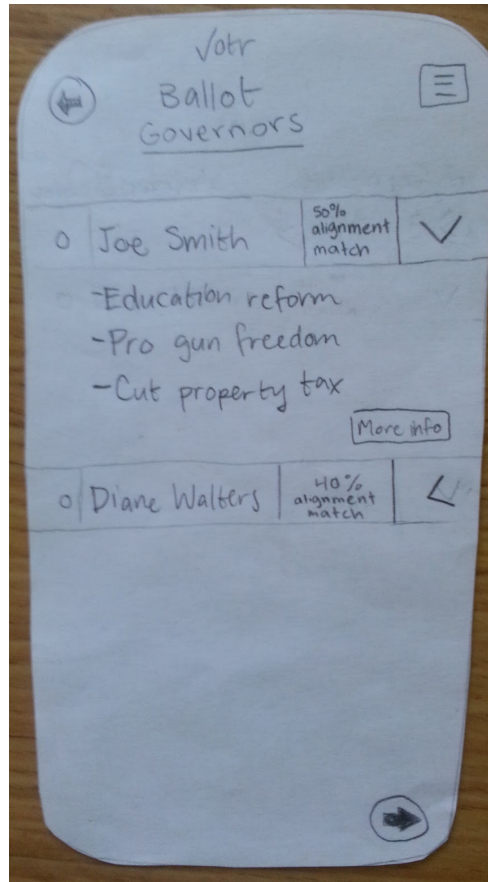 Votr
Ballot
Governors
Joe Smith
50%
alignment
match
-Education reform
-Pro gun freedom
-Cut property tax
More info
Diane Walters
40%
alignment
match